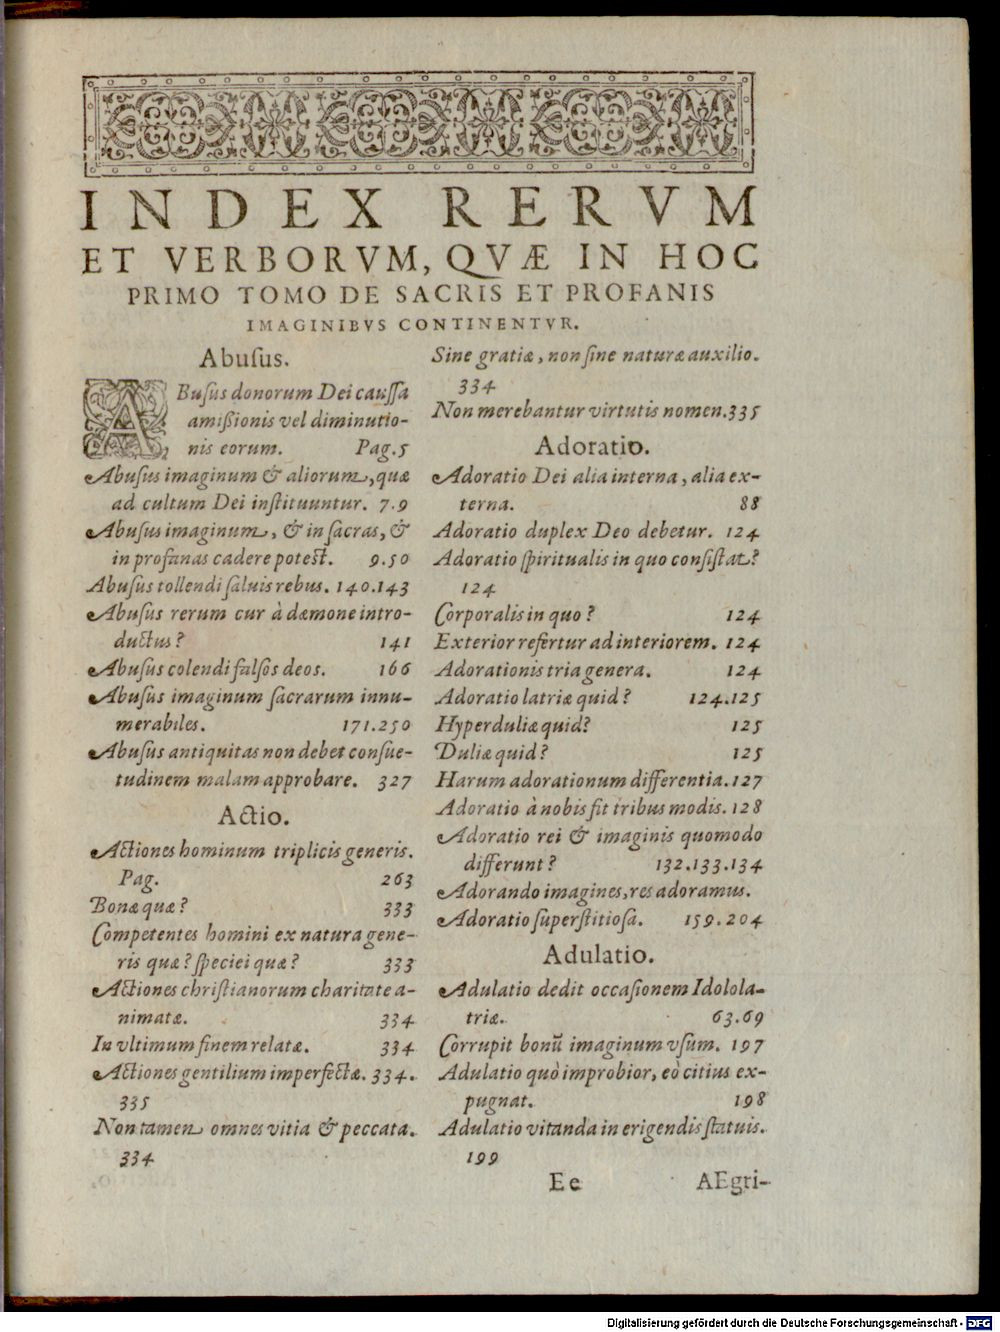 INDEX RERVM
ET VERBORVM, QVÆ IN HOC
PRIMO TOMO DE SACRIS ET PROFANIS
IMAGINIBVS CONTINENTVR.
Abuſus.
ABuſus donorum Dei cauſſa
amißionis vel diminutio-
nis eorum. Pag.5
Abuſus imaginum & aliorum, quæ
ad cultum Dei inſtituuntur. 7.9
Abuſus imaginum, & in ſacras, &
in profanas cadere poteſt. 9.50
Abuſus tollendi ſaluis rebus. 140.143
Abuſus rerum cur à dæmone intro-
ductus? 141
Abuſus colendi falſos deos. 166
Abuſus imaginum ſacrarum innu-
merabiles. 171.250
Abuſus antiquitas non debet conſue-
tudinem malam approbare. 327
Actio.
Actiones hominum triplicis generis.
Pag. 263
Bonæ quæ? 333
Competentes homini ex natura gene-
ris quæ? ſpeciei quæ? 333
Actiones chriſtianorum charitate a-
nimatæ. 334
In vltimum finem relatæ. 334
Actiones gentilium imperfectæ. 334.
335
Non tamen omnes vitia & peccata.
334
Sine gratiæ, non ſine naturæ auxilio.
334
Non merebantur virtutis nomen. 335
Adoratio.
Adoratio Dei alia interna, alia ex-
terna. 88
Adoratio duplex Deo debetur. 124
Adoratio ſpiritualis in quo conſiſtat?
124
Corporalis in quo? 124
Exterior refertur ad interiorem. 124
Adorationis tria genera. 124
Adoratio latriæ quid? 124.125
Hyperduliæ quid? 125
Duliæ quid? 125
Harum adorationum differentia. 127
Adoratio à nobis fit tribus modis. 128
Adoratio rei & imaginis quomodo
differunt? 132.133.134
Adorando imagines, res adoramus.
Adoratio ſuperſtitioſa. 159.204
Adulatio.
Adulatio dedit occaſionem Idolola-
triæ. 63.69
Corrupit bonū imaginum vſum. 197
Adulatio quò improbior, eò citius ex-
pugnat. 198
Adulatio vitanda in erigendis ſtatuis.
199
Ee AEgri-
Digitalisierung gefördert durch die Deutsche Forschungsgemeinschaft - DFG